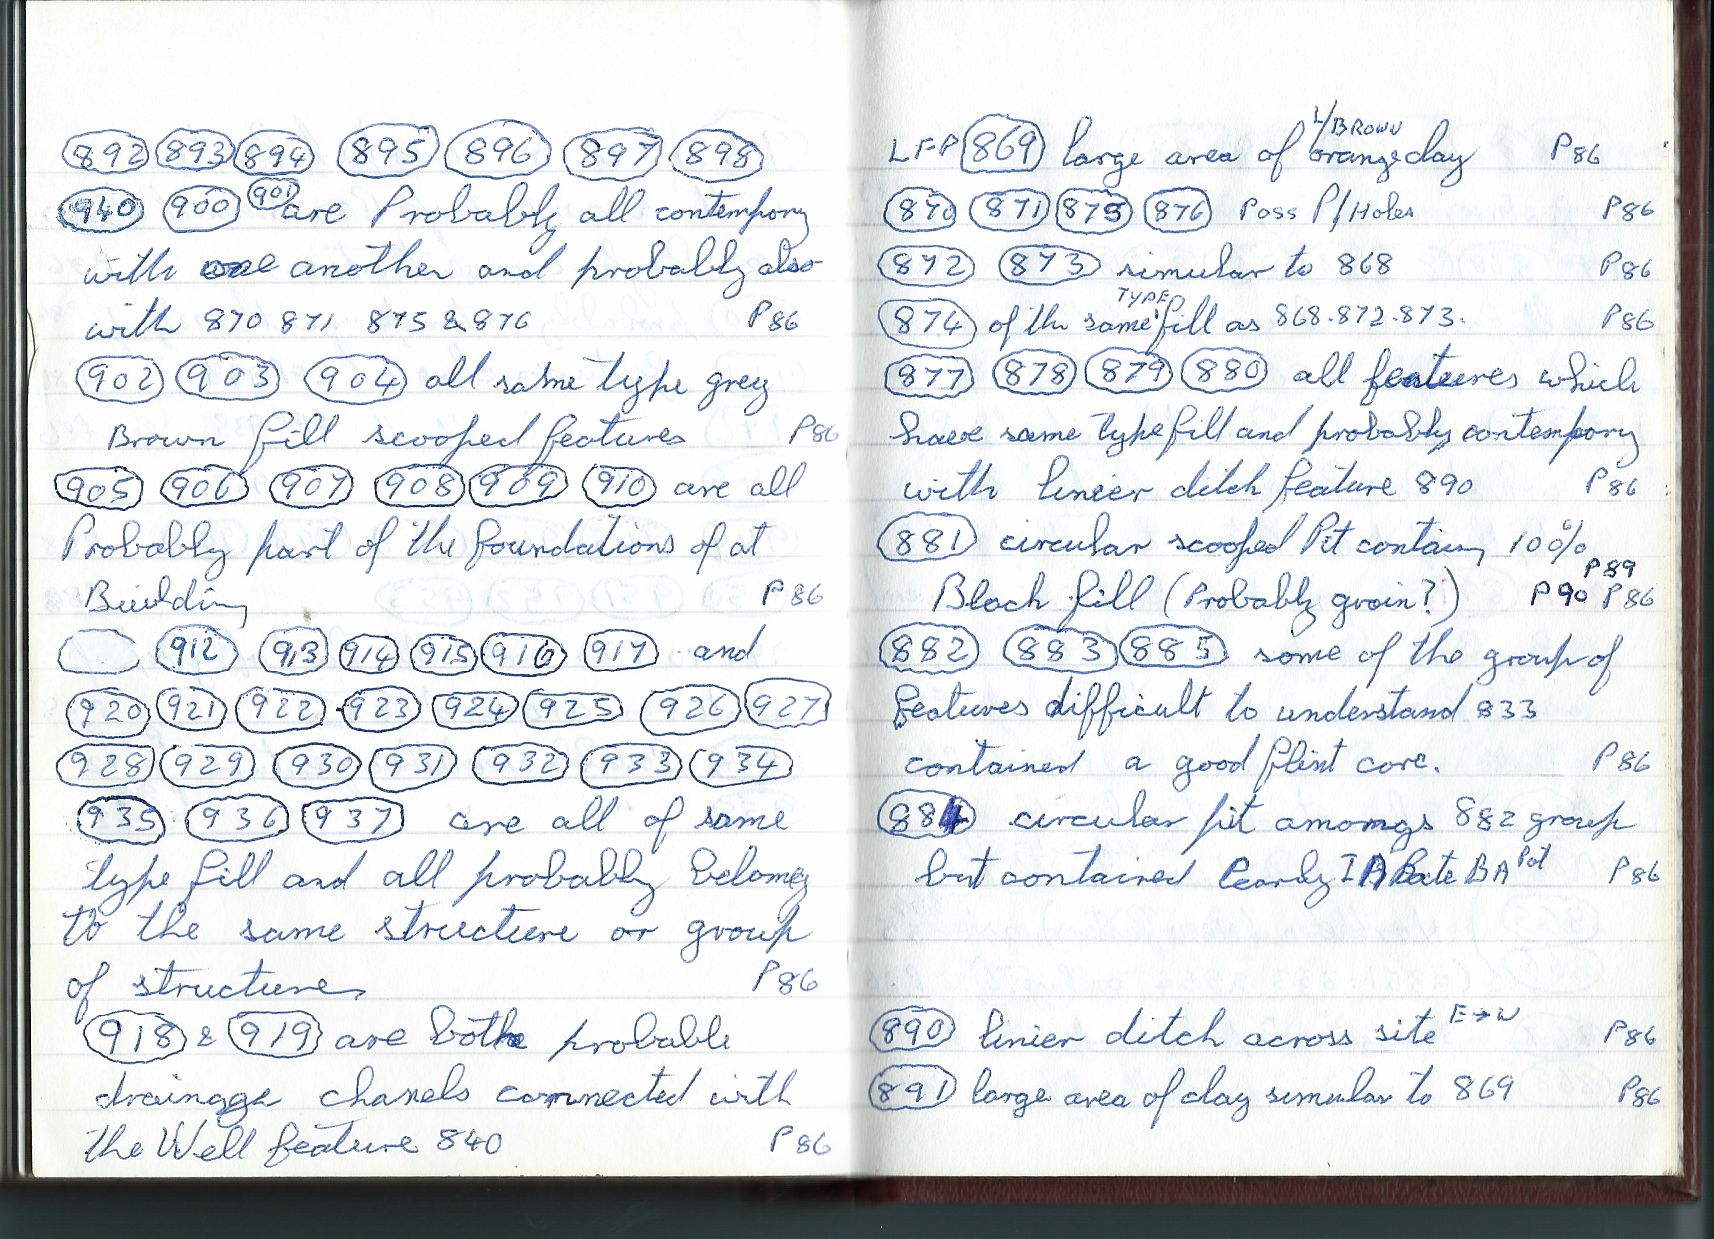 892 893 894 895 896 897 898
940 900 901 are Probably all contempory
with one another and probably also
with 870 871 875 & 876 P86
902 903 904 all same type grey
Brown fill scooped features P86
905 906 907 908 909 910 are all
Probably part of the foundations of at
Building P86
912 913 914 915 916 917 and
920 921 922 923 924 925 926 927
928 929 930 931 932 933 934
935 936 937 are all of same
type fill and all probably belong
to the same structure or group
of structures P86
918 & 919 are both probable
drainage chanels connected with
the Well feature 840 P86
LFP 869 large area of L/BROWN orange clay P86
870 871 875 876 Poss P/Holes P86
872 873 simular to 868 P86
874 of the same TYPE fill as 868.872.873. P86
877 878 879 880 all features which
have same type fill and probably contempory
with linier ditch feature 890 P86
881 circular scooped Pit containing 100%
P89
Black fill (Probably grain?) P90 P86
882 883 885 some of the group of
features difficult to understand 833
contained a good flint core. P86
884 circular pit amongs 882 group
but contained Early IA Late BA Pot P86
890 linier ditch across site E→W P86
891 large area of clay simular to 869 P86